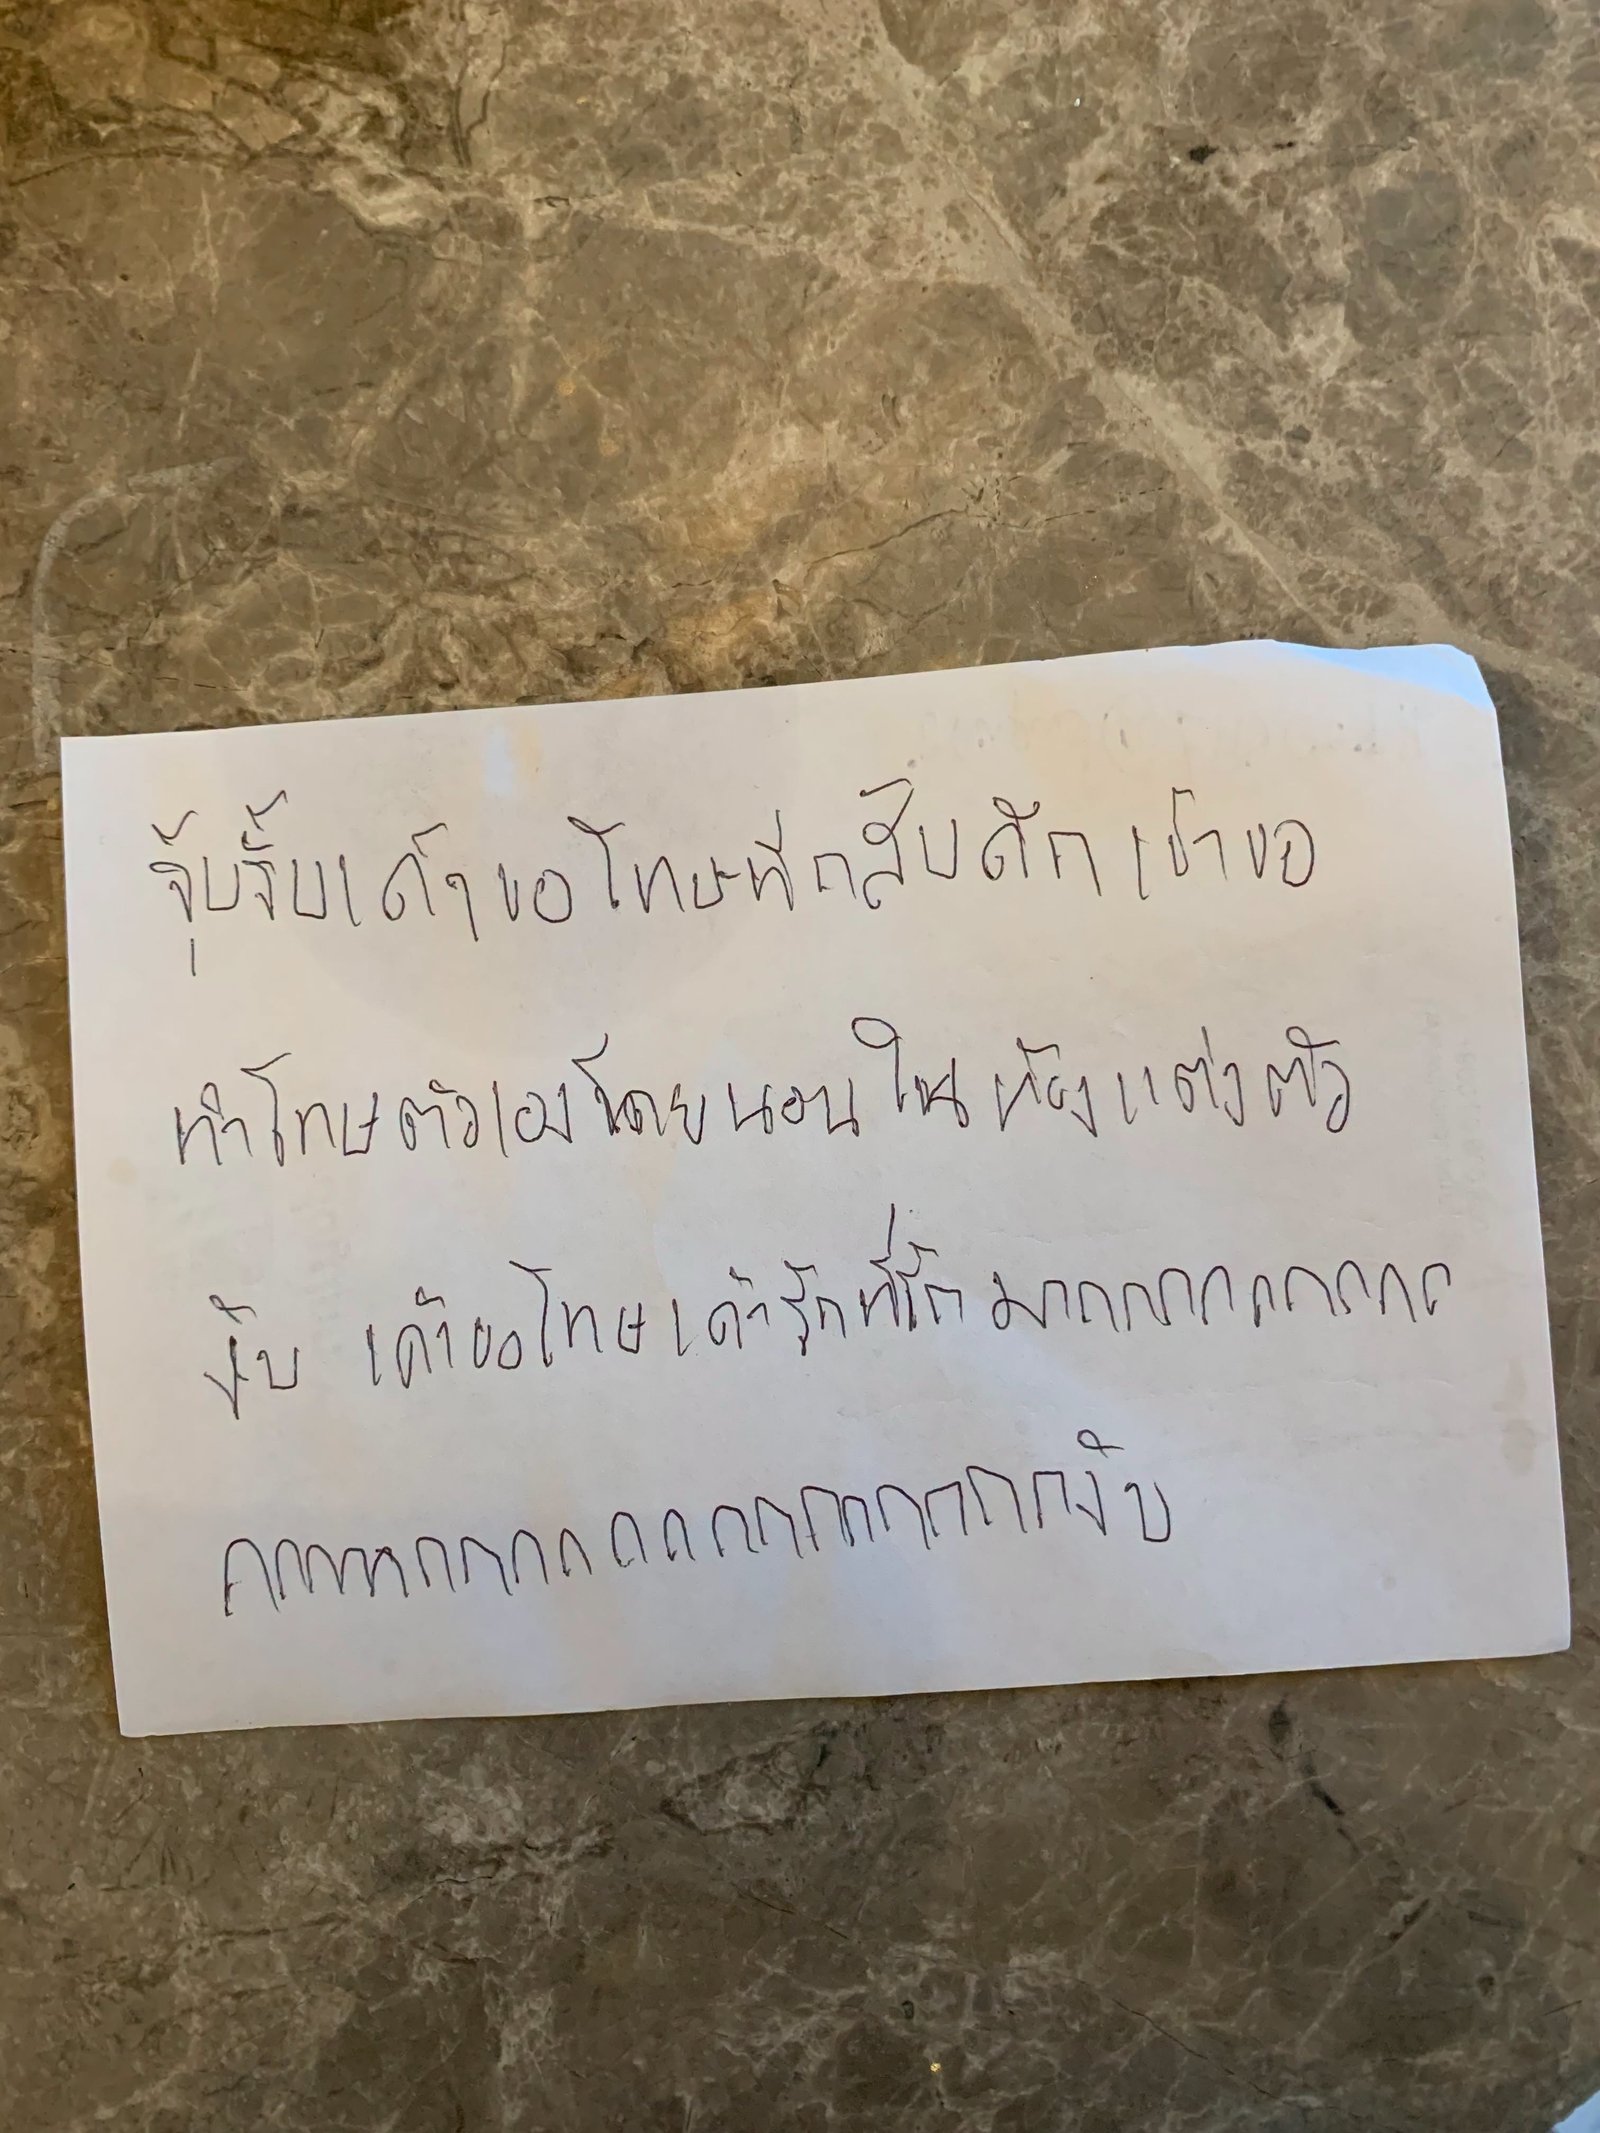 จุ้บจิ้บเค้าขอโทษที่กลับดึกเข้าขอ
ทำโทษตัวเองโดยนอนในห้องแต่งตัว
งับ เค้าขอโทษเค้ารักที่รักมากกกกกกกกก
กกกกกกกกกกกกกกกกกกกกกงับ